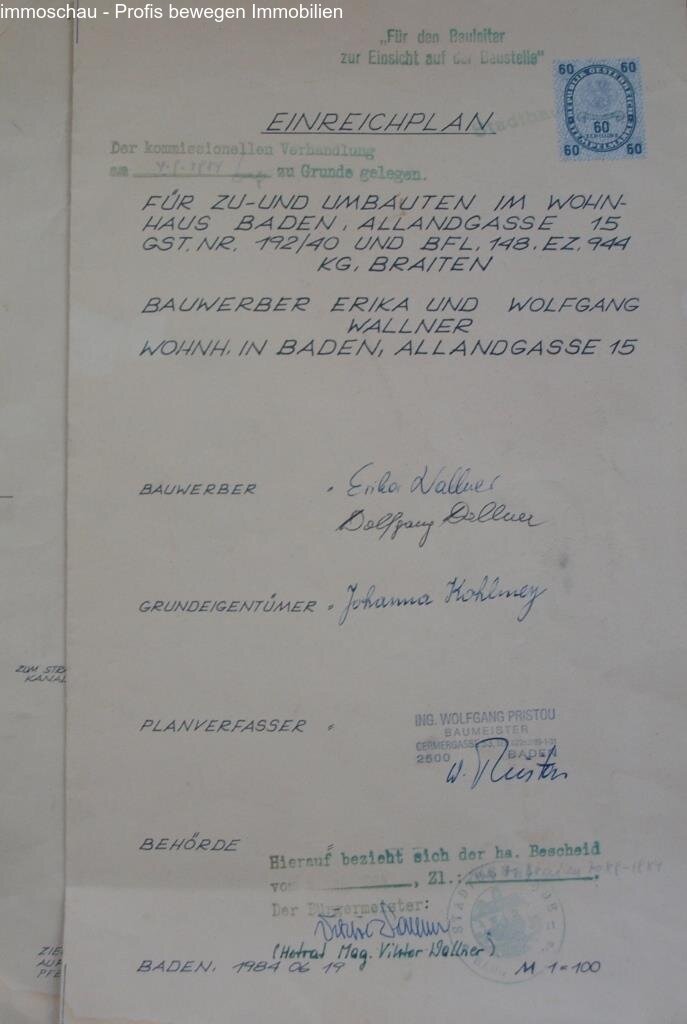 immoschau - Profis bewegen Immobilien
„Für den Bauleiter
zur Einsicht auf der Baustelle"
60 60
REPUBLIK OESTERREICH
60
SCHILLING
STEMPELMARKE
60 60
EINREICHPLAN
Der kommissionellen Verhandlung
am zu Grunde gelegen.
FÜR ZU-UND UMBAUTEN IM WOHN-
HAUS BADEN, ALLANDGASSE 15
GST. NR. 192/40 UND BFL. 148. EZ. 944
KG. BRAITEN
BAUWERBER ERIKA UND WOLFGANG
WALLNER
WOHNH. IN BADEN, ALLANDGASSE 15
BAUWERBER : Erika Wallner
Wolfgang Wallner
GRUNDEIGENTÜMER : Johanna Kohlmey
ZUM STR
KANAL
PLANVERFASSER :
ING. WOLFGANG PRISTOU
BAUMEISTER
GERMERGASSE
2500 BADEN
BEHÖRDE :
Hierauf bezieht sich der hs. Bescheid
vom , Zl.:
Der Bürgermeister:
Viktor Wallner
(Hofrat Mag. Viktor Wallner)
ZIE
AUF
PFE
BADEN, 1984 06 19 M 1=100